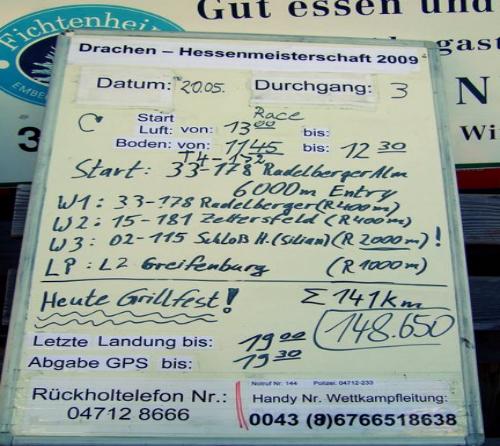 Gut essen und
Fichtenheim
EMBE
gast
3
N
Wi
Drachen – Hessenmeisterschaft 2009
Datum: 20.05. Durchgang: 3
Start Race
Luft: von: 13 00 bis:
Boden: von: 11 45 bis: 12 30
Start: 33-178 Radelberger Alm
6000m Entry
W1: 33-178 Radelberger (R 400m)
W2: 15-181 Zettersfeld (R 400m)
W3: 02-115 Schloß H. (Silian) (R 2000m)!
LP: L2 Greifenburg (R 1000m)
Heute Grillfest! Σ 141km
148.650
Letzte Landung bis: 19 00
Abgabe GPS bis: 19 30
Notruf Nr: 144 Polizei: 04712-233
Rückholtelefon Nr.: Handy Nr. Wettkampfleitung:
04712 8666 0043 (0)6766518638